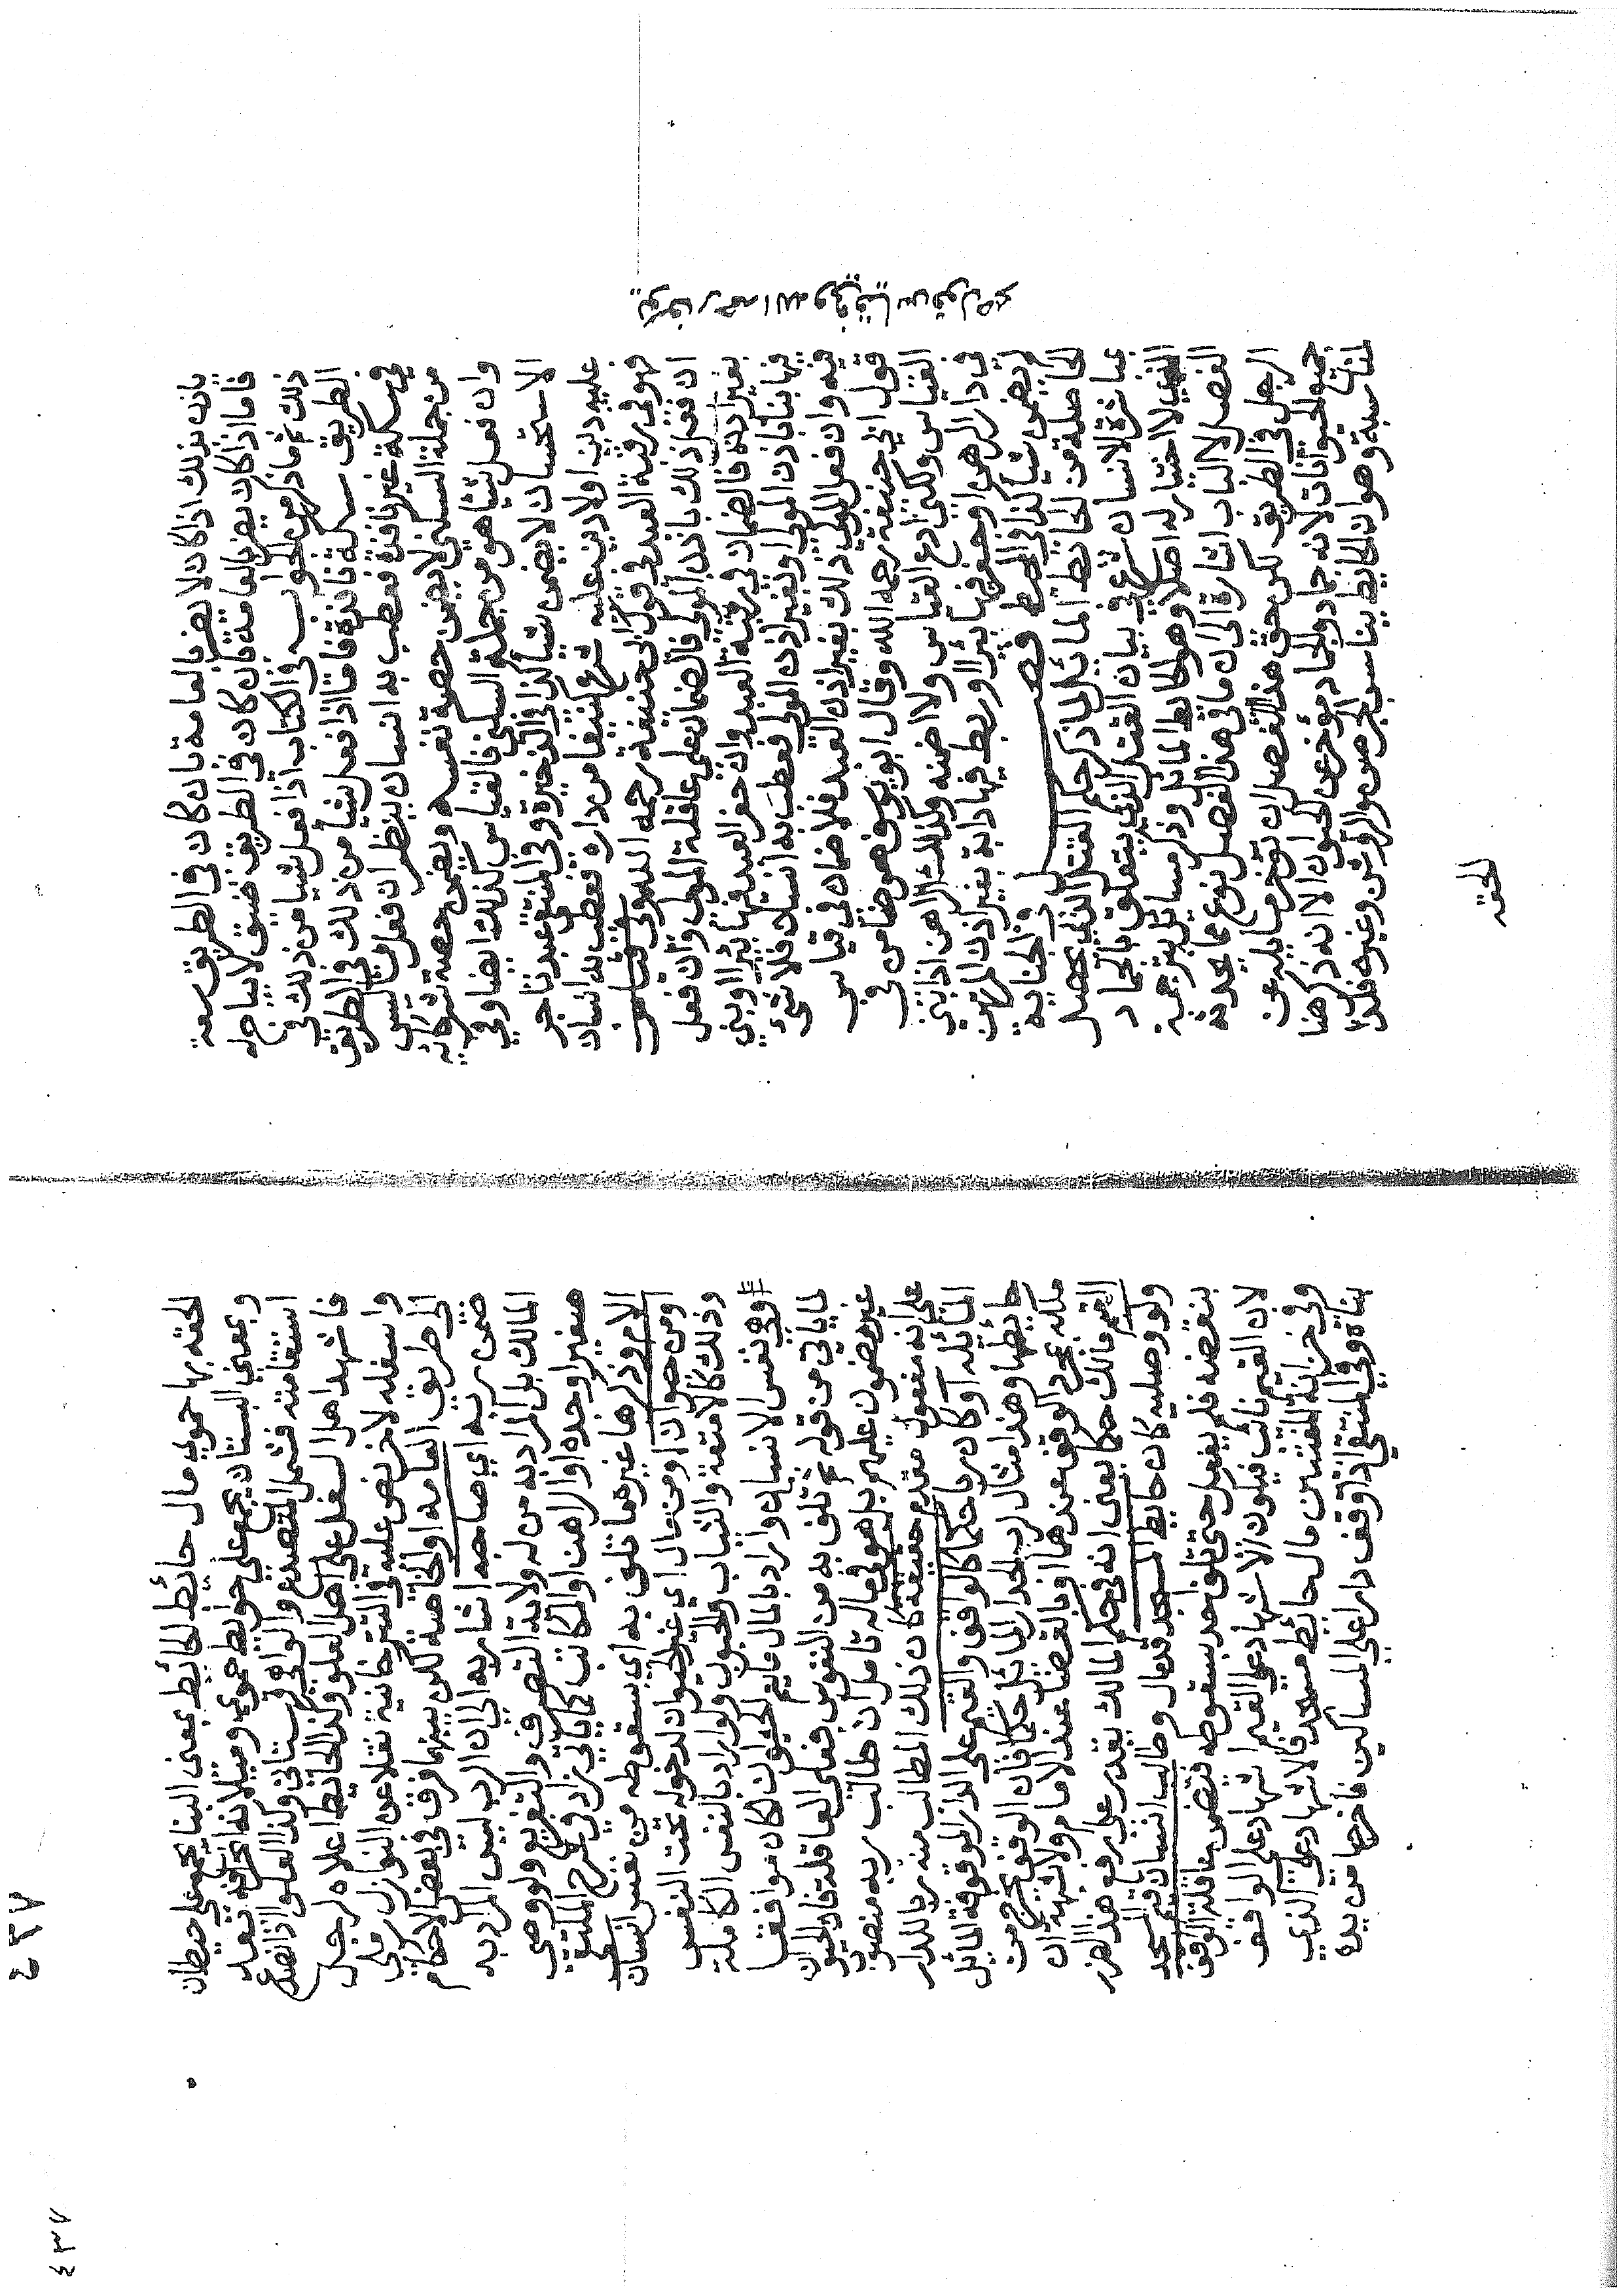 باذن بذلك اذا كان لا يضر بالعامة بان كان في الطريق سعة
فاما اذا كان يضر بالعامة بان كان في الطريق ضيق لا يباح له
ذلك ثم ما ذكر من الجواب في الكتاب اذا فعل شيا من ذلك في
الطريق سكة نافذة فاما اذا فعل شيأ من ذلك في الطريق
في سكة غير نافذة فعطب به انسان ينظر ان فعل ما ليس
من جملة السكنى لا يضمن حصة نفسه ويضمن حصة شركائه
وان فعل شيئا هو من جملة السكنى فالقياس كذلك ايضا وفي
الاستحسان لا يضمن شيا كذا في الذخيرة وفي المنتقى عبد تاجر
عليه دين او لا دين عليه شرع كنيفا من داره فعطب به انسان
فهو في رقبة العبد في قول ابي حنيفة رحمه الله وفي قياس
ان فعل ذلك باذن المولى فالضمان على عاقلة المولى وان فعل
بغير اذنه فالضمان في رقبة العبد وان حفر العبد فيها بئرا او بنى
فيها بناء باذن المولى او بغير اذن المولى فعطب به انسان فلا شيء
فيه وان فعل المولى ذلك بغير اذن العبد فلا ضمان في قياس
قول ابي حنيفة رحمه الله وقال ابو يوسف هو ضامن في
القياس ولكني ادع القياس ولا اضمنه وكذلك الراهن اذا بنى
في دار الرهن او حفر فيها بئرا او ربط فيها دابة بغير اذن المرتهن
لم يضمن شيأ كذا في المحيط فصل في الجناية
الحاصلة من الحايط المائل لما ذكر حكم القتل الذي يحصل
مباشرة الانسان شرع في بيان القتل الذي يتعلق بالجماد
الذي لا اختيار له اصلا وهو الحائط المائل وذكر مسائل بترجمة
الفصل لا الباب اشارة الى ان ما في هذا الفصل نوع مما عدة
الرجل في الطريق لكن حق هذا الفصل ان تؤخر مسايله عن
جميع الحيوانات لانه جماد والجماد مؤخر عن الحيوان الا انه ذكر هنا
لمناسبة وهو ان الحائط يناسب الجرصن والروشن وغيره فلذا
لحقته
لحقته بها حموي مال حائط الحائط بمعنى البناء يجمع على حيطان
وبمعنى البستان يجمع على حوايط حموي وميلانه انحرافه بعد
استقامته فشمل المتصدع والواهي قهستاني وكذا العلو اذا انصدع
فاشهد اهل السفل على اهل العلو وكذا الحايط اعلاه لرجل
واسفله لاخر نص عليه في التتارخانية نقلا عن النوازل رملي
الى طريق العامة والخاصة لكن بينهما فرق في بعض الاحكام
ضمن ربه اي صاحبه اشار به الى ان الرب ليس المراد به
المالك بل المراد به من له ولاية التصرف والتفريغ ولو وصي
صغير او جده او الراهن او المكاتب كما ياتي زاد في شرح الملتقى
الام وذكرها غيرهما تلف به اي بسقوطه من نفس انسان
او من حيوان او من مال اي غير الحيوان لدخوله تحت النفس
وذلك كالامتعة والثياب والحبوب ولو اراد بالنفس الكاملة
وهي نفس الانسان واراد بالمال ما يعم الحيوان لكان موافقا
لما ياتي من قوله ثم ما تلف به من النفوس فعلى العاقلة فان الحيوان
غير مضمون عليهم بل هو في ماله تامل ان طالب ربه منصوب
على انه مفعول مقدم حقيقة كان ذلك المطالب منه ربا للدار
المائلة او كان ربا حكما كالواقف والقيم على الدار الموقوفة المائل
حايطها وهذا مثال لرب الجدار المائل حكما فان الوقف يخرج من
ملكه بمجرد الوقف عندهما او بالقضاء عند الامام ولا شبهة ان
القيم مالك حكما يعني انه في حكم المالك يقدر على رفع هذا الضرر
ولو وصليه كان حايط المسجد قد مال وطالب انسان قيم المسجد
بنقضه فلم يفعل حتى تلف احد بسقوطه فتضمن عاقلة الواقف
لان القيم نائب فيكون الاشهاد على القيم اشهاد على الواقف
وفي خزانة المفتين مال حائط مسجد فالاشهاد على الذي
بناه وفي المنتقى اذا وقف دارا على المساكين فاخرجها من يده
٤٣٧
٤٣٧